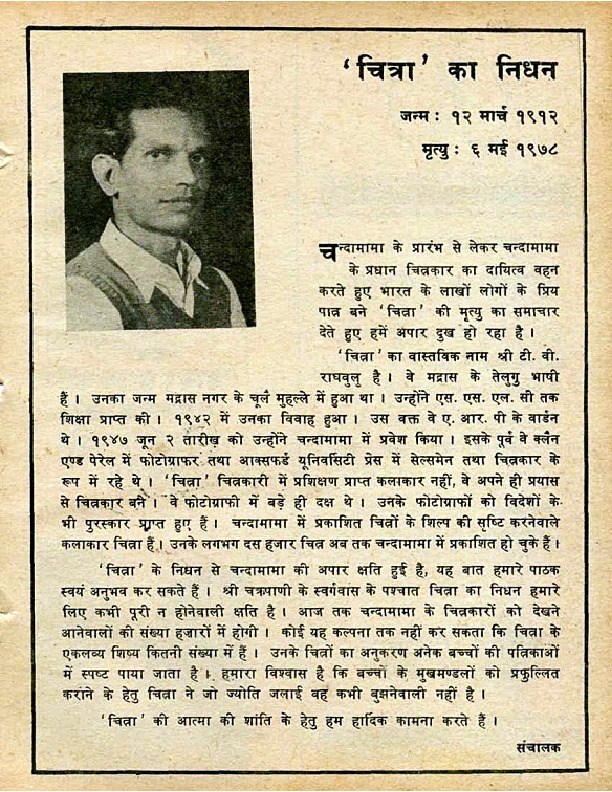 'चित्रा' का निधन
जन्म: १२ मार्च १९१२
मृत्यु: ६ मई १९७८
चन्दामामा के प्रारंभ से लेकर चन्दामामा
के प्रधान चित्रकार का दायित्व वहन
करते हुए भारत के लाखों लोगों के प्रिय
पात्र बने 'चित्रा' की मृत्यु का समाचार
देते हुए हमें अपार दुख हो रहा है।
'चित्रा' का वास्तविक नाम श्री टी. वी.
राघवुलु है। वे मद्रास के तेलुगु भाषी
हैं। उनका जन्म मद्रास नगर के चूलै मुहल्ले में हुआ था। उन्होंने एस. एस. एल. सी तक
शिक्षा प्राप्त की। १९४२ में उनका विवाह हुआ। उस वक्त वे ए. आर. पी के वार्डन
थे। १९४७ जून २ तारीख को उन्होंने चन्दामामा में प्रवेश किया। इसके पूर्व वे क्लेन
एण्ड पेरेल में फोटोग्राफर तथा आक्सफर्ड यूनिवर्सिटी प्रेस में सेल्समेन तथा चित्रकार के
रूप में रहे थे। 'चित्रा' चित्रकारी में प्रशिक्षण प्राप्त कलाकार नहीं, वे अपने ही प्रयास
से चित्रकार बने। वे फोटोग्राफी में बड़े ही दक्ष थे। उनके फोटोग्राफों को विदेशों के
भी पुरस्कार प्राप्त हुए हैं। चन्दामामा में प्रकाशित चित्रों के शिल्प की सृष्टि करनेवाले
कलाकार चित्रा हैं। उनके लगभग दस हजार चित्र अब तक चन्दामामा में प्रकाशित हो चुके हैं।
'चित्रा' के निधन से चन्दामामा की अपार क्षति हुई है, यह बात हमारे पाठक
स्वयं अनुभव कर सकते हैं। श्री चक्रपाणी के स्वर्गवास के पश्चात चित्रा का निधन हमारे
लिए कभी पूरी न होनेवाली क्षति है। आज तक चन्दामामा के चित्रकारों को देखने
आनेवालों की संख्या हजारों में होगी। कोई यह कल्पना तक नहीं कर सकता कि चित्रा के
एकलव्य शिष्य कितनी संख्या में हैं। उनके चित्रों का अनुकरण अनेक बच्चों की पत्रिकाओं
में स्पष्ट पाया जाता है। हमारा विश्वास है कि बच्चों के मुखमण्डलों को प्रफुल्लित
कराने के हेतु चित्रा ने जो ज्योति जलाई वह कभी बुझनेवाली नहीं है।
'चित्रा' की आत्मा की शांति के हेतु हम हार्दिक कामना करते हैं।
संचालक